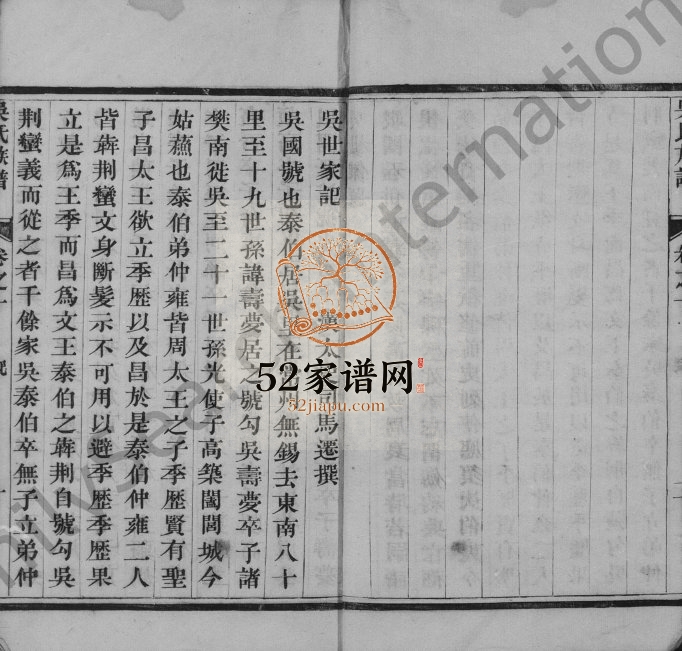 吳世家記
漢太
司馬遷撰
吳國號也泰伯居吳
在
州無錫去東南八十
里至十九世孫諱壽夢居之號勾吳壽夢卒子諸
樊南徙吳至二十一世孫光使子高築闔閭城今
姑蘓也泰伯弟仲雍皆周太王之子季歷賢有聖
子昌太王欲立季歷以及昌於是泰伯仲雍二人
皆犇荆蠻文身斷髮示不可用以避季歷季歷果
立是爲王季而昌爲文王泰伯之犇荆自號勾吳
荆蠻義而從之者千餘家吳泰伯卒無子立弟仲
吳氏族譜
卷之一
吳氏族譜
52家谱网
52jiapu.com